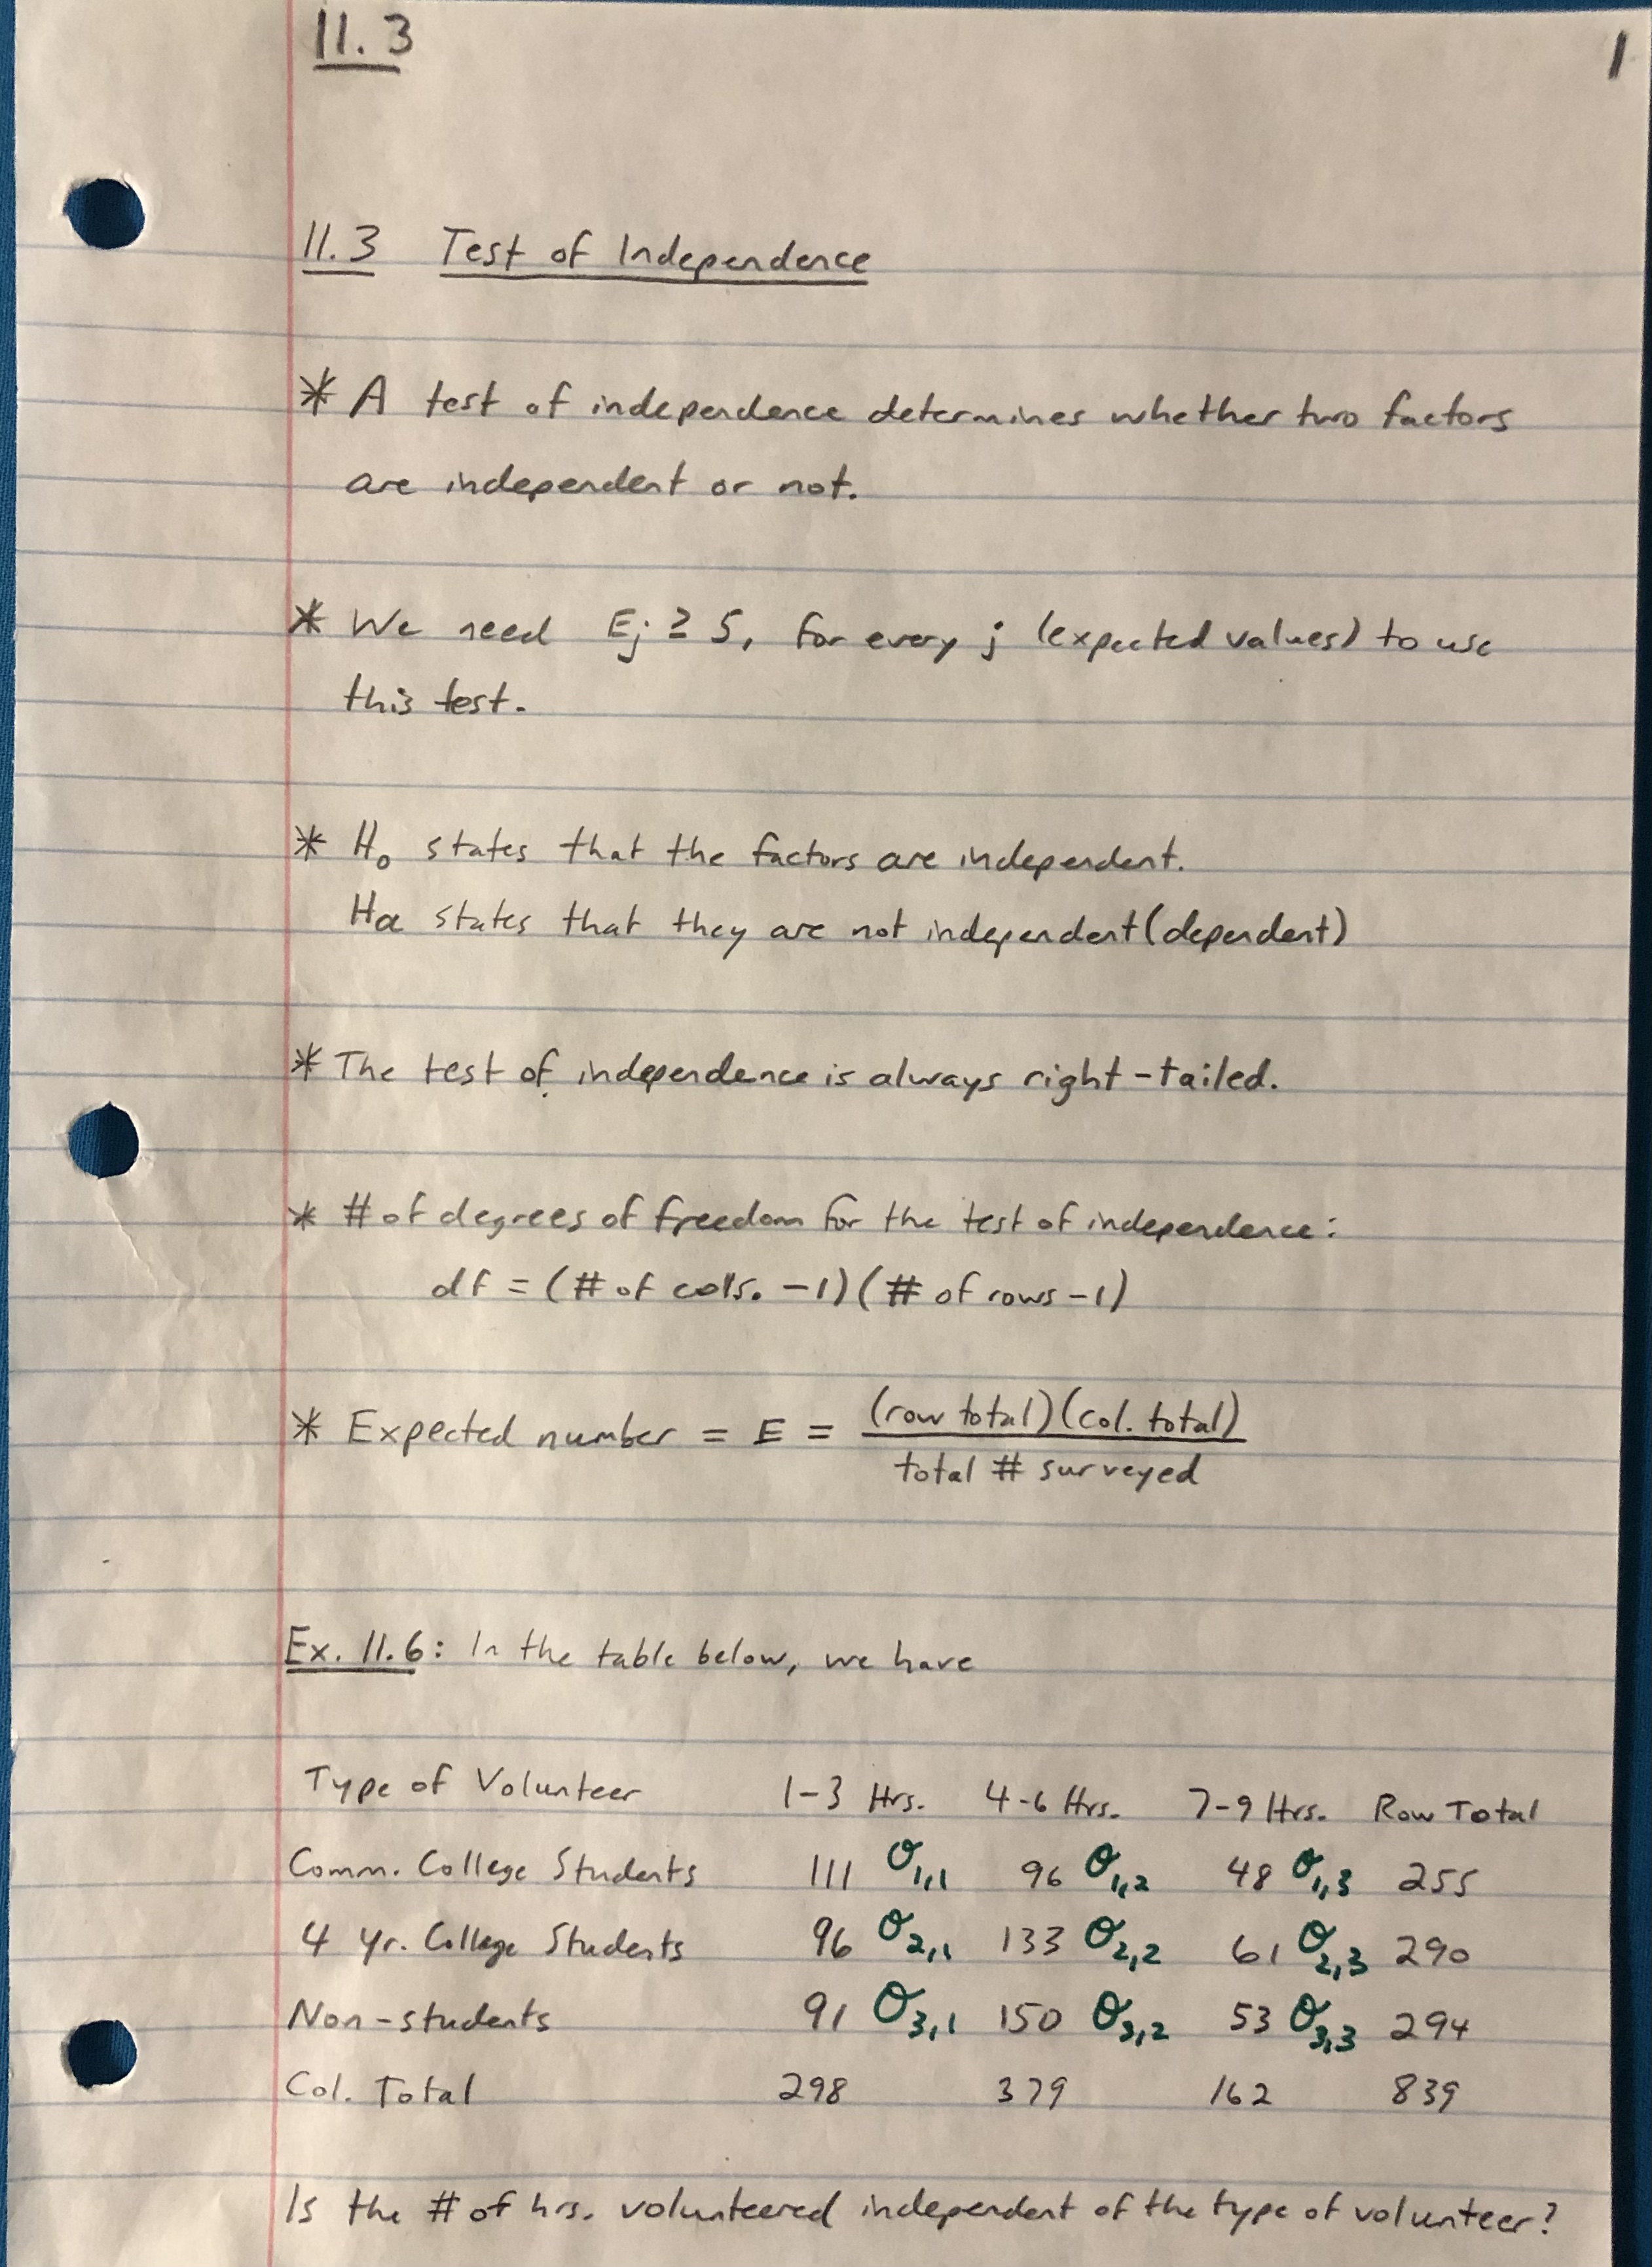 11.3 1
11.3 Test of Independence
* A test of independence determines whether two factors
are independent or not.
* We need Ej ≥ 5, for every j (expected values) to use
this test.
* H₀ states that the factors are independent.
Ha states that they are not independent (dependent)
* The test of independence is always right-tailed.
* # of degrees of freedom for the test of independence:
df = (# of cols. -1)(# of rows -1)
* Expected number = E = (row total)(col. total)
total # surveyed
Ex. 11.6: In the table below, we have
Type of Volunteer 1-3 Hrs. 4-6 Hrs. 7-9 Hrs. Row Total
Comm. College Students 111 O1,1 96 O1,2 48 O1,3 255
4 yr. College Students 96 O2,1 133 O2,2 61 O2,3 290
Non-students 91 O3,1 150 O3,2 53 O3,3 294
Col. Total 298 379 162 839
Is the # of hrs. volunteered independent of the type of volunteer?